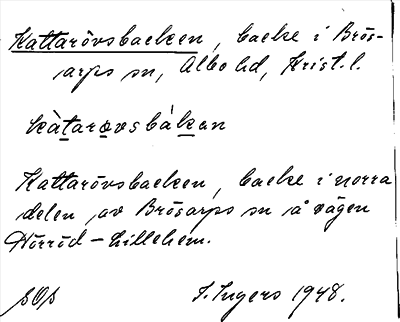 Kattarövsbacken, backe i Brös-
arps sn, Albo hd, Krist. l.
kàtarovsbákan
Kattarövsbacken, backe i norra
delen av Brösarps sn å vägen
Hörröd – Lillehem.
SOS J. Ingers 1948.